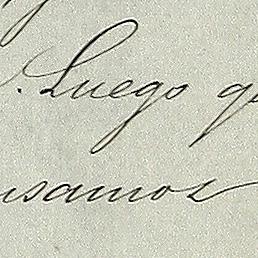 . Luego q
usamos